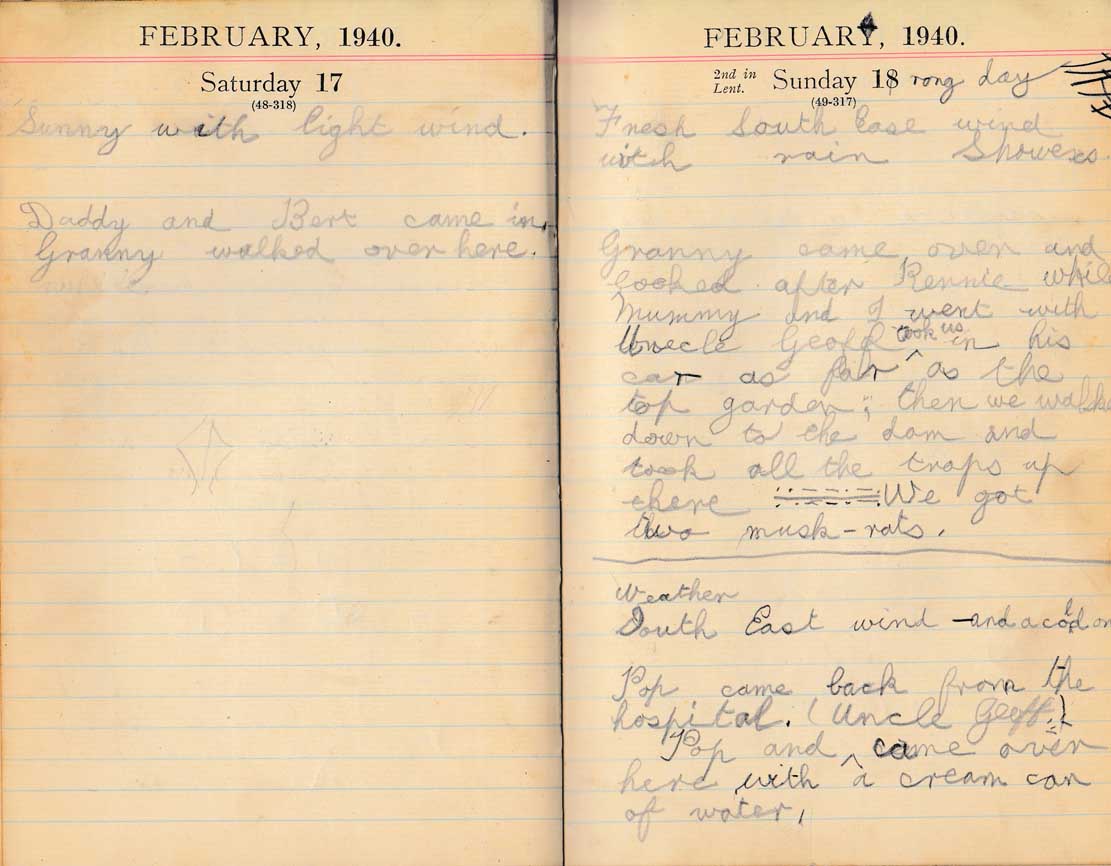 FEBRUARY, 1940.
Saturday 17
(48-318)
Sunny with light wind.
Daddy and Bert came in.
Granny walked over here.
FEBRUARY, 1940.
2nd in Lent. Sunday 18 rong day
(49-317)
Fresh South Ease wind
with rain Showers.
Granny came over and
looked after Rennie while
Mummy and I went with
Uncle Geoff took us in his
car as far ^ as the
top garden; then we walke
down to the dam and
took all the traps up
there We got
two musk-rats.
Weather
South East wind - and a cold on
Pop came back from the
hospital. (Uncle Geoff.)
Pop and ^ came over
here with a cream can
of water.